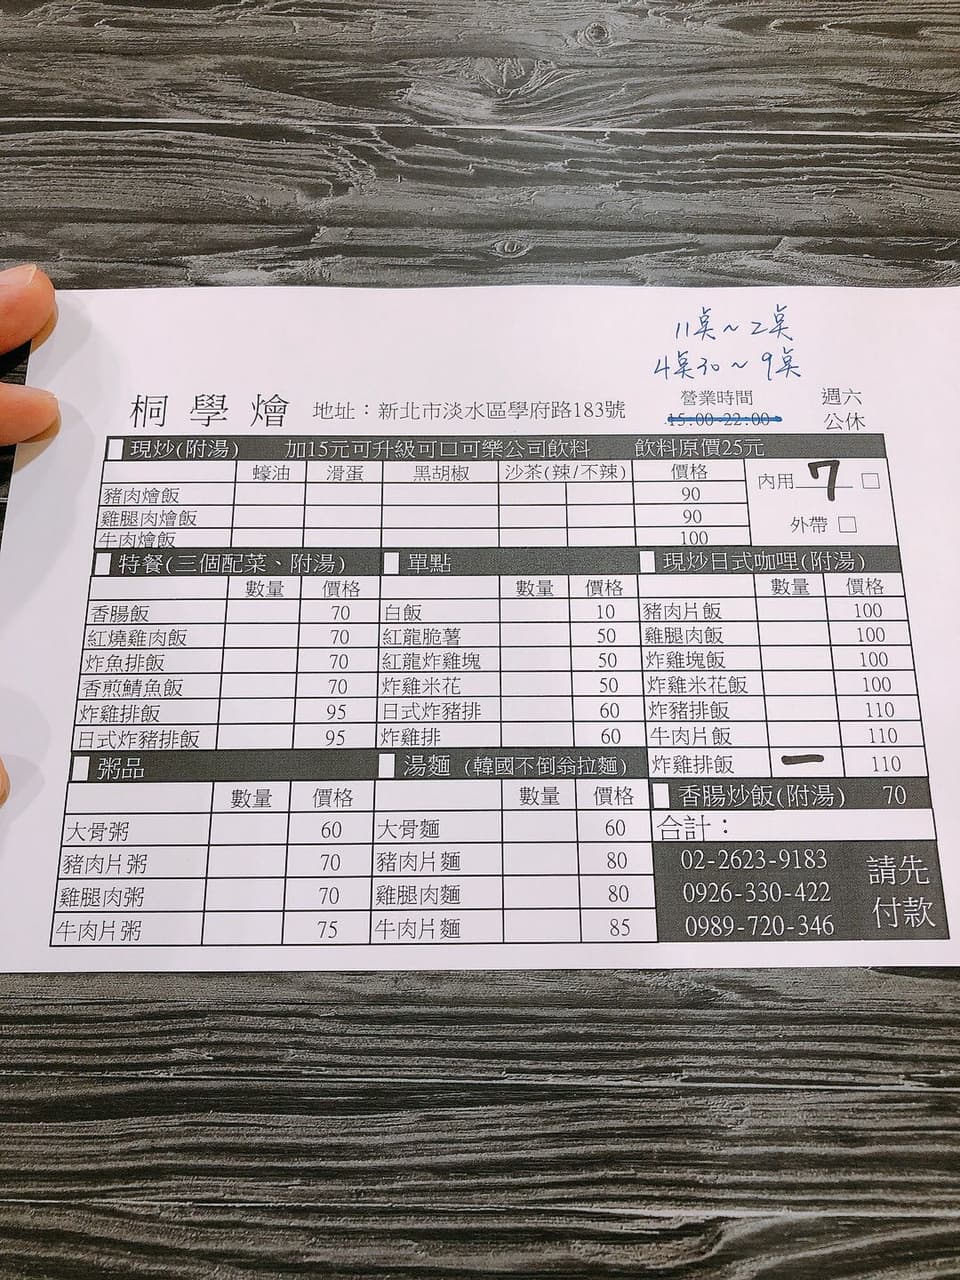 11點～2點
4點30～9點
桐學燴 地址：新北市淡水區學府路183號 營業時間 15:00-22:00 週六公休
現炒(附湯) 加15元可升級可口可樂公司飲料 飲料原價25元
蠔油 滑蛋 黑胡椒 沙茶(辣/不辣) 價格
豬肉燴飯 90
雞腿肉燴飯 90
牛肉燴飯 100
內用 7 □
外帶 □
特餐(三個配菜、附湯)
數量 價格
香腸飯 70
紅燒雞肉飯 70
炸魚排飯 70
香煎鯖魚飯 70
炸雞排飯 95
日式炸豬排飯 95
單點
數量 價格
白飯 10
紅龍脆薯 50
紅龍炸雞塊 50
炸雞米花 50
日式炸豬排 60
炸雞排 60
現炒日式咖哩(附湯)
數量 價格
豬肉片飯 100
雞腿肉飯 100
炸雞塊飯 100
炸雞米花飯 100
炸豬排飯 110
牛肉片飯 110
炸雞排飯 一 110
粥品
數量 價格
大骨粥 60
豬肉片粥 70
雞腿肉粥 70
牛肉片粥 75
湯麵 (韓國不倒翁拉麵)
數量 價格
大骨麵 60
豬肉片麵 80
雞腿肉麵 80
牛肉片麵 85
香腸炒飯(附湯) 70
合計：
02-2623-9183
0926-330-422
0989-720-346
請先
付款